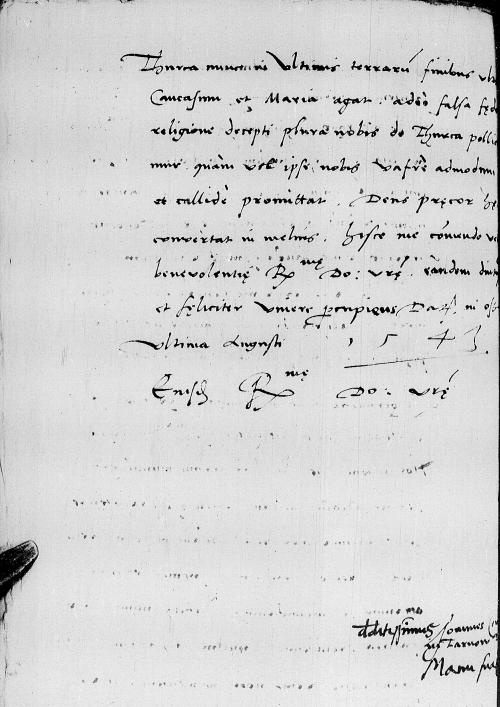 Thurca nunc in Ultimis terrarū finibus ult
Caucasum et Maria agat. adeo falsa fęde
religione decepti plura nobis de Thurca pollice
mur quàm vel ipse nobis vafrè admodum
et callidè promittat. Deus pręcor hęc
convertat in melius. hisce me cōmendo
benevolentię Rx mę Do: vrę. eandem diutiss
et fęliciter vivere percupiens Dat. in
Ultima Augusti 1543.
Eiusd Rx mę Do: vrę
dditissimus Joannes
in Tarnow
Manu sua